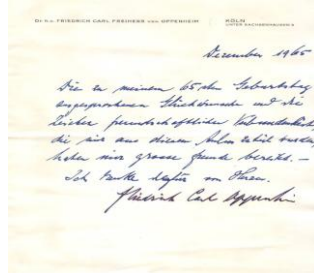 Dr. h.c. FRIEDRICH CARL FREIHERR VON OPPENHEIM
KÖLN
UNTER SACHSENHAUSEN 4
Dezember 1965
Die zu meinem 65sten Geburtstag
ausgesprochenen Glückwünsche und die
Zeichen freundschaftlicher Verbundenheit
die mir aus diesem Anlass zuteil wurden
haben mir grosse Freude bereitet. –
Ich danke dafür von Herzen.
Friedrich Carl Oppenheim